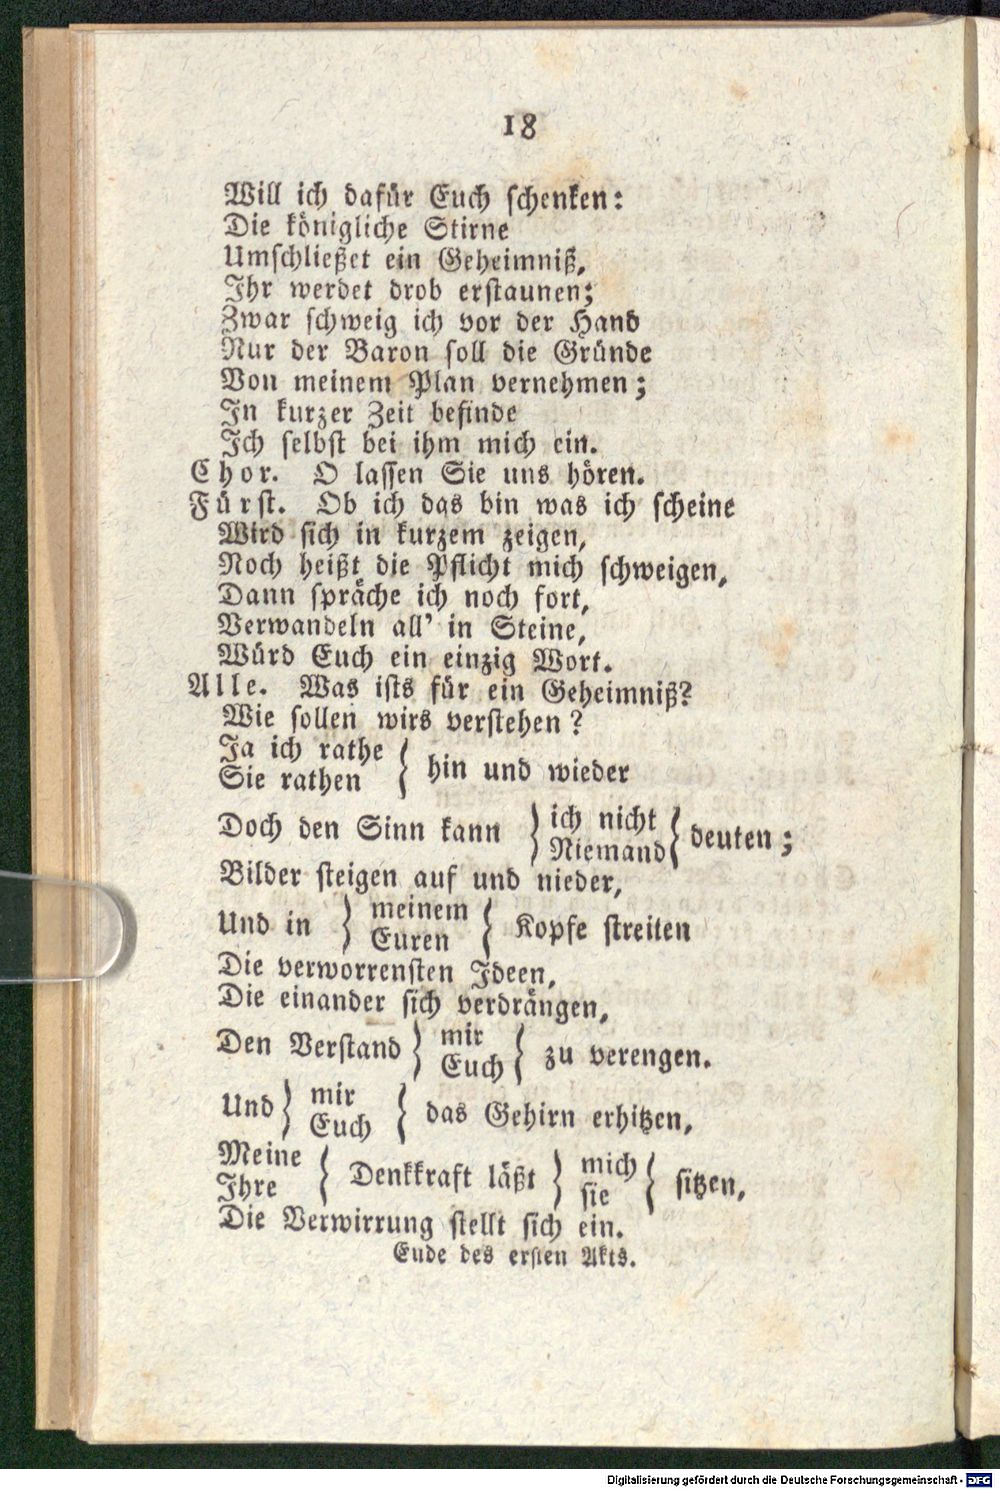 18
Will ich dafür Euch schenken:
Die königliche Stirne
Umschließet ein Geheimniß,
Ihr werdet drob erstaunen;
Zwar schweig ich vor der Hand
Nur der Baron soll die Gründe
Von meinem Plan vernehmen;
In kurzer Zeit befinde
Ich selbst bei ihm mich ein.
Chor. O lassen Sie uns hören.
Fürst. Ob ich das bin was ich scheine
Wird sich in kurzem zeigen,
Noch heißt die Pflicht mich schweigen,
Dann spräche ich noch fort,
Verwandeln all' in Steine,
Würd Euch ein einzig Wort.
Alle. Was ists für ein Geheimniß?
Wie sollen wirs verstehen?
Ja ich rathe
Sie rathen } hin und wieder
Doch den Sinn kann } ich nicht
Niemand } deuten;
Bilder steigen auf und nieder,
Und in } meinem
Euren } Kopfe streiten
Die verworrensten Ideen,
Die einander sich verdrängen,
Den Verstand } mir
Euch } zu verengen.
Und } mir
Euch } das Gehirn erhitzen,
Meine
Ihre } Denkkraft läßt } mich
sie } sitzen,
Die Verwirrung stellt sich ein.
Ende des ersten Akts.
Digitalisierung gefördert durch die Deutsche Forschungsgemeinschaft - DFG